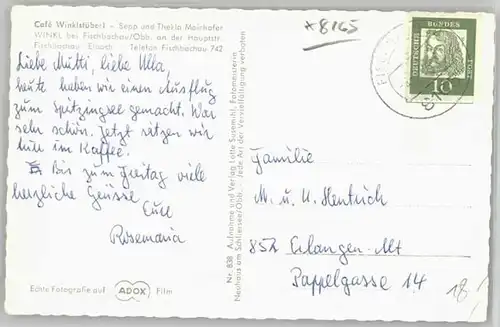 Café Winklstüberl - Sepp und Thekla Mairhofer
WINKL bei Fischbachau/Obb. an der Hauptstr.
Fischbachau Elbach Telefon Fischbachau 742
* 8165
Liebe Mutti, liebe Ulla,
heute haben wir einen Ausflug
zum Spitzingsee gemacht. War
sehr schön. Jetzt sitzen wir
hier im Kaffee.
Bis zum Freitag viele
herzliche Grüsse
Eure
Rosemaria
Echte Fotografie auf ADOX Film
Nr. 838 Aufnahme und Verlag Lotte Susemihl, Fotomeisterin
Neuhaus am Schliersee/Obb. Jede Art der Vervielfältigung verboten
DEUTSCHE
BUNDES
POST
10
Familie
M. u. U. Hentrich
852 Erlangen-Alt
Pappelgasse 14
18